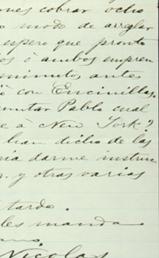 ones cobrar ocho
modo de arreglar
espero que pronto
os ó ambos empren
minutos, antes
ó con Encinillas,
mutar Pablo cual
e á New York?
han dicho de las
ria darme instruc
y otras varias
tarde.
les manda
ano,
Nicolas